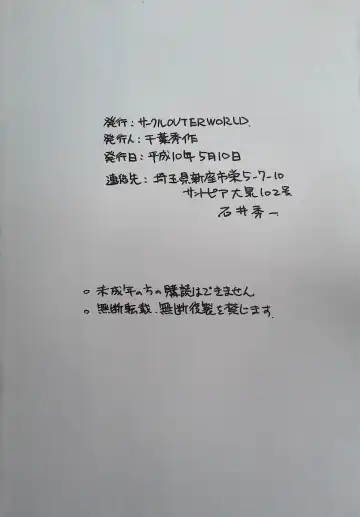 発行：サークルOUTERWORLD.
発行人：千葉秀作
発行日：平成10年5月10日
連絡先：埼玉県新座市栄5-7-10
サントピア大泉102号
石井秀一
○ 未成年の方の購読はできません
○ 無断転載・無断複製を禁じます.